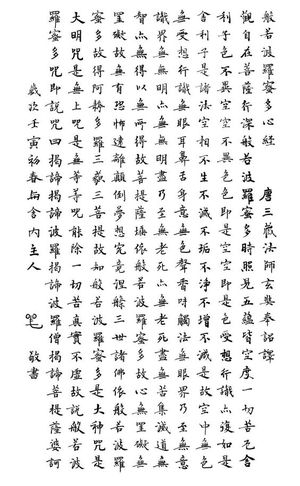 般若波羅蜜多心經 唐三藏法師玄奘奉詔譯
觀自在菩薩行深般若波羅蜜多時照見五蘊皆空度一切苦厄舍
利子色不異空空不異色色即是空空即是色受想行識亦復如是
舍利子是諸法空相不生不滅不垢不淨不增不減是故空中無色
無受想行識無眼耳鼻舌身意無色聲香味觸法無眼界乃至無意
識界無無明亦無無明盡乃至無老死亦無老死盡無苦集滅道無
智亦無得以無所得故菩提薩埵依般若波羅蜜多故心無罣礙無
罣礙故無有恐怖遠離顛倒夢想究竟涅槃三世諸佛依般若波羅
蜜多故得阿耨多羅三藐三菩提故知般若波羅蜜多是大神咒是
大明咒是無上咒是無等等咒能除一切苦真實不虛故說般若波
羅蜜多咒即說咒曰揭諦揭諦波羅揭諦波羅僧揭諦菩提薩婆訶
歲次壬寅初春內主人 敬書